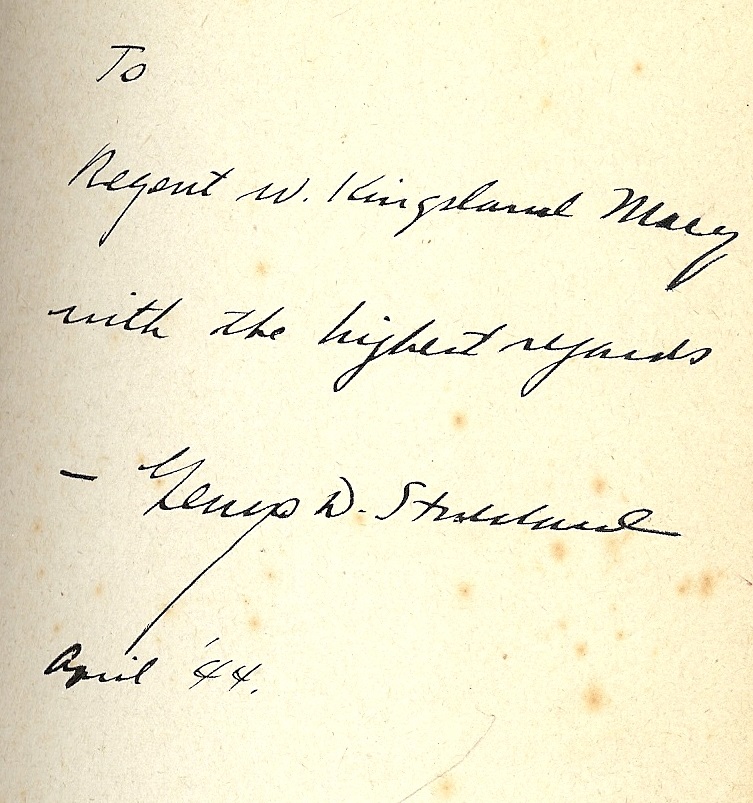 To
Regent W. Kingsland Macy
with the highest regards
– George D. Stoddard
April '44.